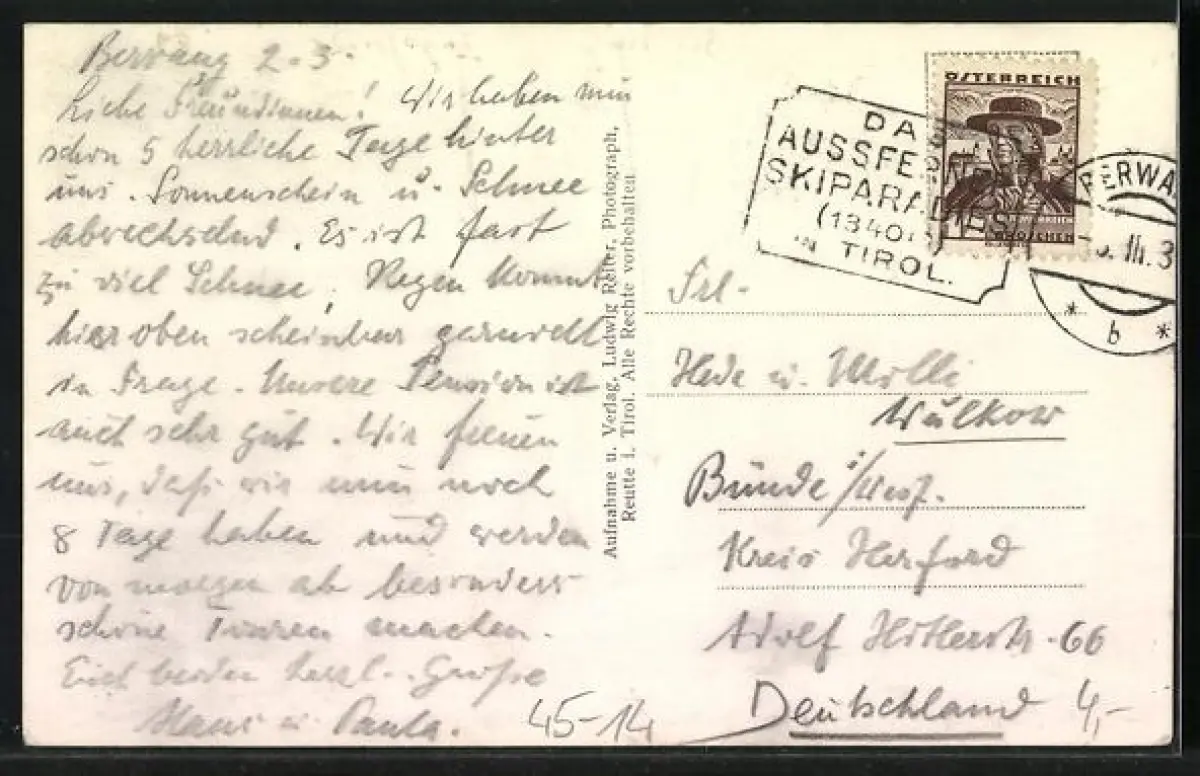 Berwang 2.3.
Liebe Freundinnen! Wir haben nun
schon 5 herrliche Tage hinter
uns. Sonnenschein u. Schnee
abwechselnd. Es ist fast
zu viel Schnee, Regen kommt
hier oben scheinbar garnicht
in Frage. Unsere Pension ist
auch sehr gut. Wir freuen
uns, daß wir nun noch
8 Tage haben und werden
von morgen ab besonders
schöne Touren machen.
Euch beiden herzl. Grüße
Hans u Paula.
45-14
Aufnahme u. Verlag, Ludwig Reiter, Photograph,
Reutte i. Tirol. Alle Rechte vorbehalten
ÖSTERREICH
GROSCHEN
DA
AUSSFE
SKIPARADIES
(1340
IN TIROL.
BERWA
III.3
* b *
Frl.
Hede u. Molli
Wulkow
Bünde i/Westf.
Kreis Herford
Adolf Hitlerstr. 66
Deutschland 4,-